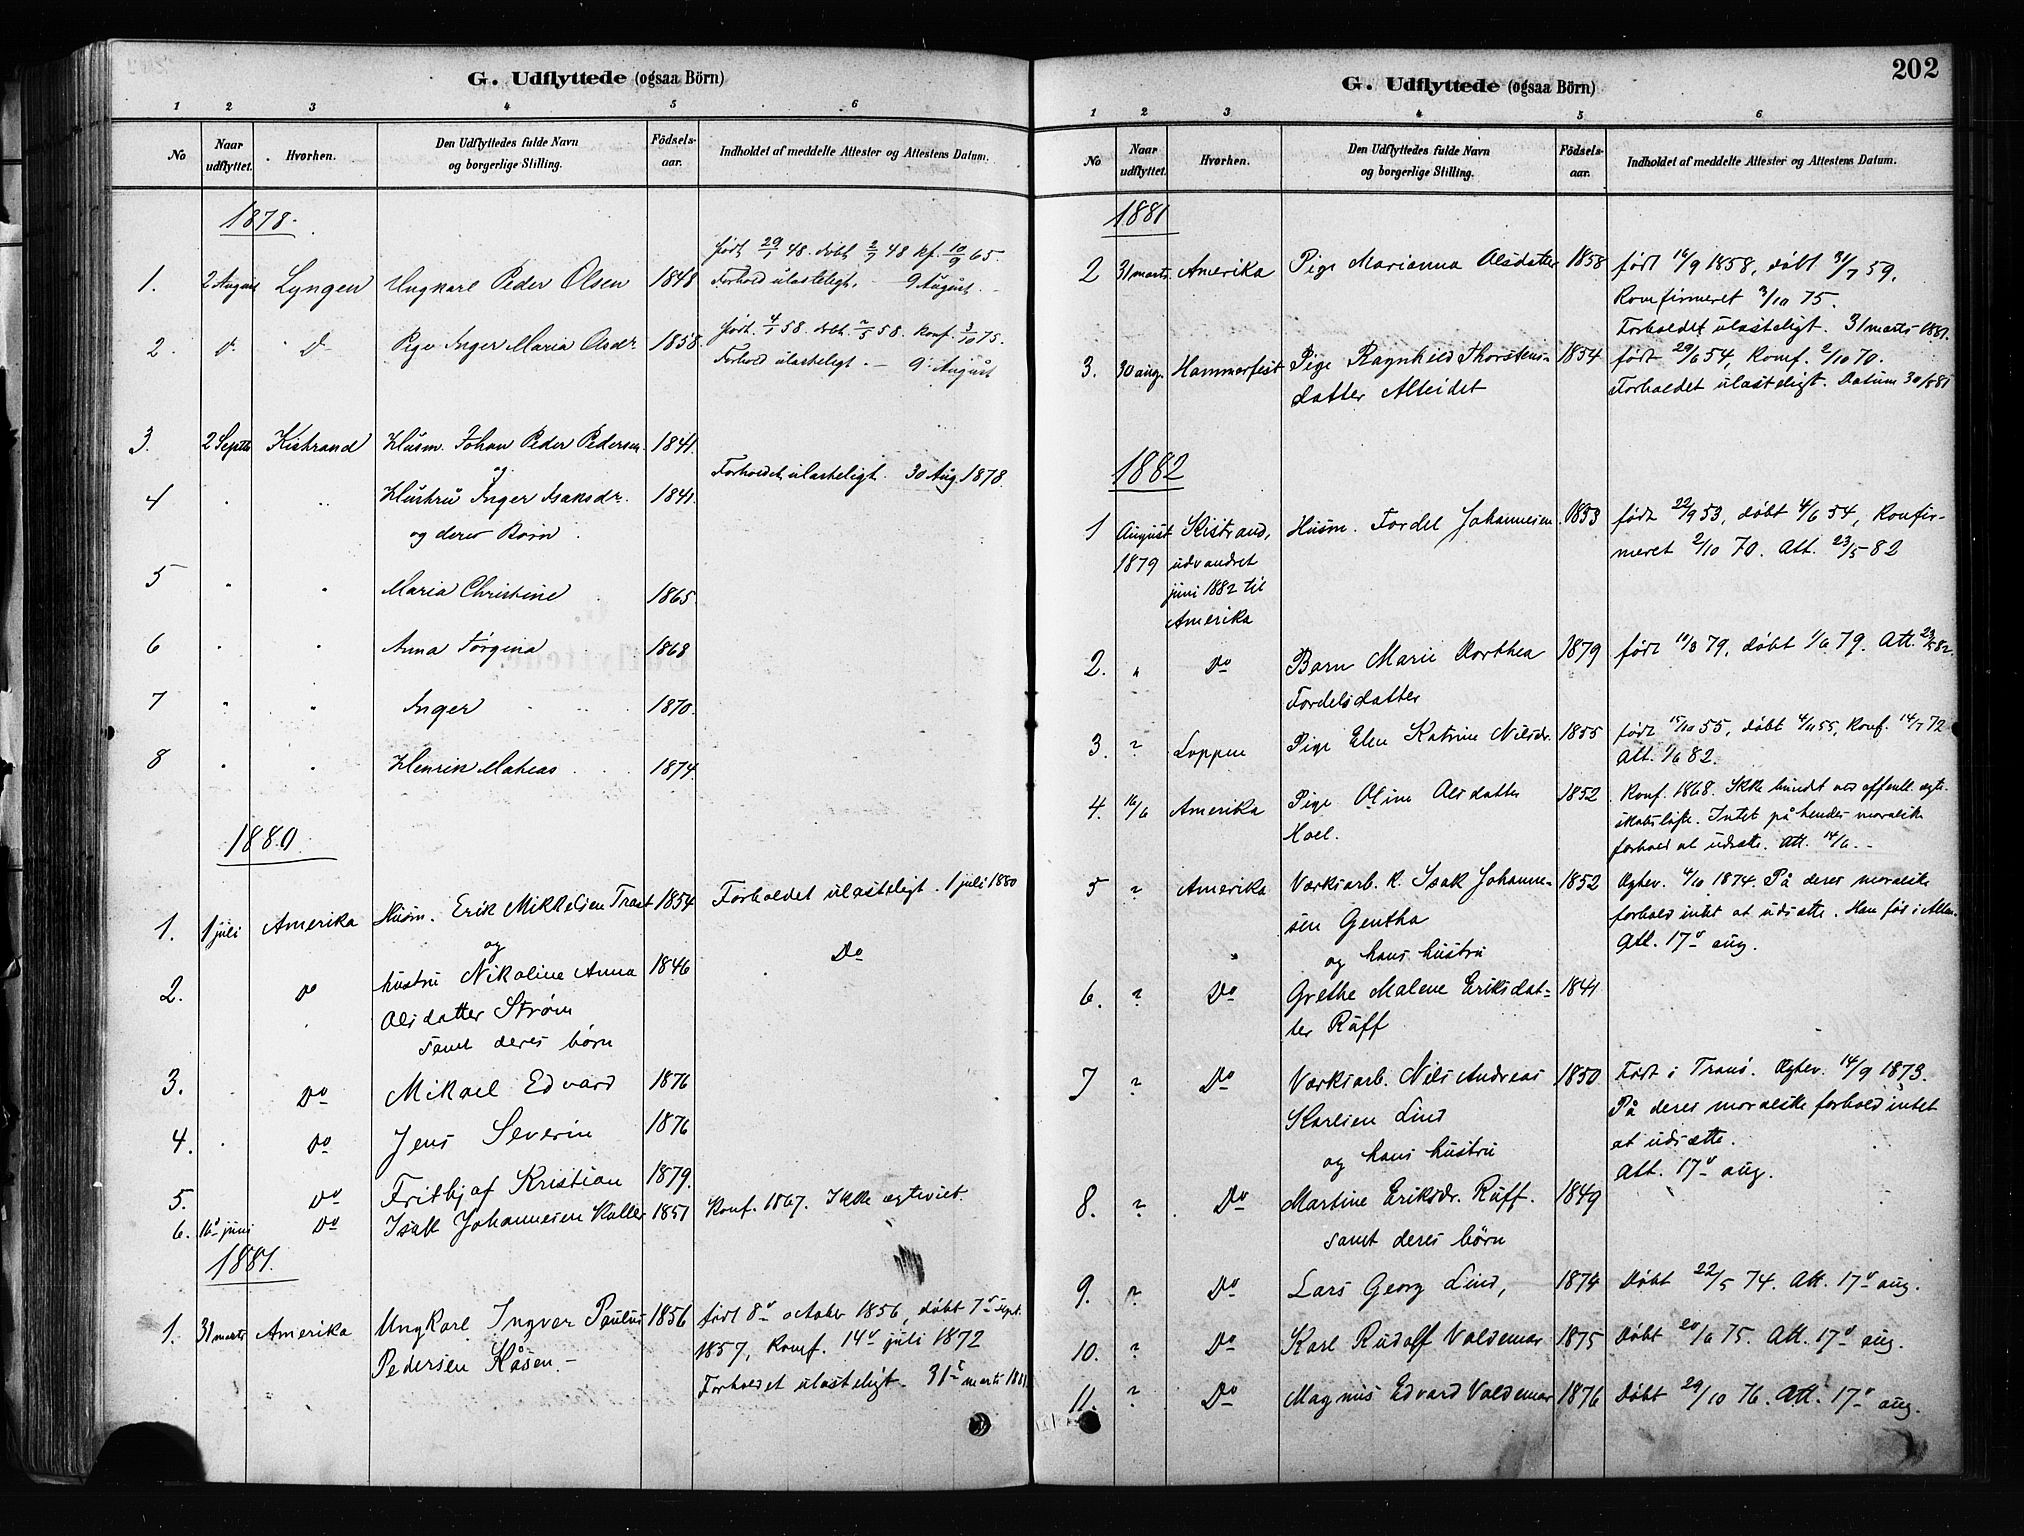 G. Udflyttede (ogsaa Börn)
1 2 3 4 5 6
No Naar udflyttet. Hvorhen. Den Udflyttedes fulde Navn og borgerlige Stilling. Födsels-aar. Indholdet af meddelte Attester og Attestens Datum.
1878.
født 29/1 48. døbt 2/7 48 kf. 10/9 65.
1. 2 August Lyngen Ungkarl Peder Olsen 1848 Forhold ulasteligt. - 9 August.
født 4/1 58. døbt 2/5 58. konf. 3/10 75.
2. d. D Pige Inger Maria Olsdr. 1858 Forhold ulasteligt. - 9 August
3. 2 Septb Kistrand Husm. Johan Peder Pedersen 1841.
og Forholdet ulasteligt. 30 Aug 1878.
4 " " Hustru Inger Isaksdr. 1841.
og deres Børn
5 " " Maria Christine 1865
6 " " Anna Jørgina 1868
7 " " Inger 1870.
8 " " Henrik Mathias 1874.
1880.
1. 1 juli Amerika Husm. Erik Mikkelsen Trast 1854 Forholdet ulasteligt. 1 juli 1880
og Do
2. do hustru Nikoline Anna 1846
Olsdatter Strøm
samt deres børn
3. Do Mikael Edvard 1876
4. Do Jens Severin 1876
5. Do Fritbjof Kristian 1879.
6. 16 juni Do Isak Johannesen Kaller 1851 Konf. 1867. Ikke ægteviet.
1881.
1. 31 marts Amerika Ungkarl Ingvar Paulus 1856 født 8d october 1856, døbt 7d Sept.
Pedersen Kåsen. - 1857, Konf. 14d juli 1872
Forholdet ulasteligt. 31d marts 1881
202
G. Udflyttede (ogsaa Börn)
1 2 3 4 5 6
No Naar udflyttet. Hvorhen. Den Udflyttedes fulde Navn og borgerlige Stilling. Födsels-aar. Indholdet af meddelte Attester og Attestens Datum.
1881
2 31 marts Amerika Pige Marianna Olsdatter 1858 født 14/9 1858, døbt 31/7 59.
Konfirmeret 3/10 75.
Forholdet ulasteligt. 31 marts 1881.
3. 30 aug. Hammerfest Pige Ragnhild Thorstens- 1854 født 29/6 54, Konf. 2/10 70.
datter Alteidet Forholdet ulasteligt. Datum 30/8 81
1882
1 August Kistrand, Husm. Fordel Johannesen 1853 født 22/9 53, døbt 4/6 54, Konfir-
1879 udvandret meret 2/10 70. Att. 23/5 82
juni 1882 til
Amerika
2. " Do Barn Marie Dorthea 1879 født 10/3 79, døbt 1/6 79. Att. 23/5 82.
Fordelsdatter
3. ? Loppen Pige Elen Katrine Nilsdr. 1855 født 15/10 55, døbt 4/11 55, Konf. 14/7 72
Att. 1/6 82.
4. 16/6 Amerika Pige Oline Olsdatter 1852 Konf. 1868. Ikke bundet ved offentl. ægte-
Hoel. skabsløfte. Intet på hendes moralske
forhold at udsætte. Att. 14/6. -
5 ? Amerika Værksarb. k. Isak Johanne- 1852 Ægtev. 4/10 1874. På deres moralske
sen Gentha forhold intet at udsætte. Han fød i Alten.
" og hans hustru Att. 17d aug.
6. ? Do Grethe Malene Eriksdat- 1841
ter Ruff
7 ? Do Værksarb. Nils Andreas 1850 Født i Tranø. Ægtev. 14/9 1873.
Karlsen Lind På deres moralske forhold intet
og hans hustru at udsætte.
Att. 17d aug.
8. ? Do Martine Eriksdr. Ruff. 1849
samt deres børn
9. ? Do Lars Georg Lind, 1874 Døbt 22/5 74. Att. 17d aug.
10. ? Do Karl Rudolf Valdemar 1875 Døbt 20/6 75. Att. 17d aug.
11. ? Do Magnus Edvard Valdemar 1876 Døbt 29/10 76. Att. 17d aug.